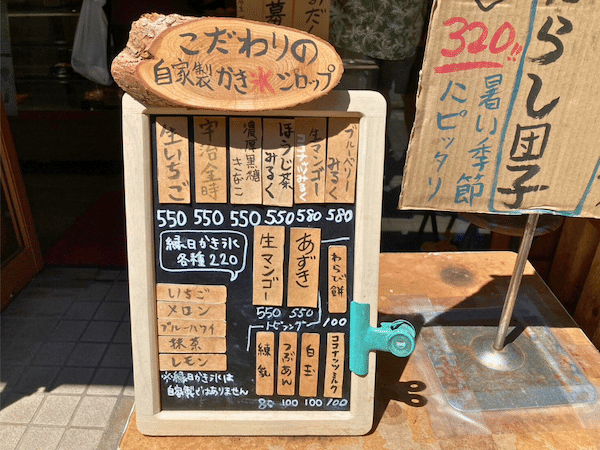 こだわりの
自家製かき氷シロップ
生いちご
550
宇治金時
550
濃厚黒糖きなこ
550
ほうじ茶みるく
550
生マンゴー
ココナッツみるく
580
ブルーベリーみるく
580
縁日かき氷
各種220
いちご
メロン
ブルーハワイ
抹茶
レモン
※縁日かき氷は
自家製ではありません
生マンゴー
550
あずき
550
トッピング
わらび餅
100
練乳
80
つぶあん
100
白玉
100
ココナッツミルク
100
らし団子
320!!
暑い季節
にピッタリ